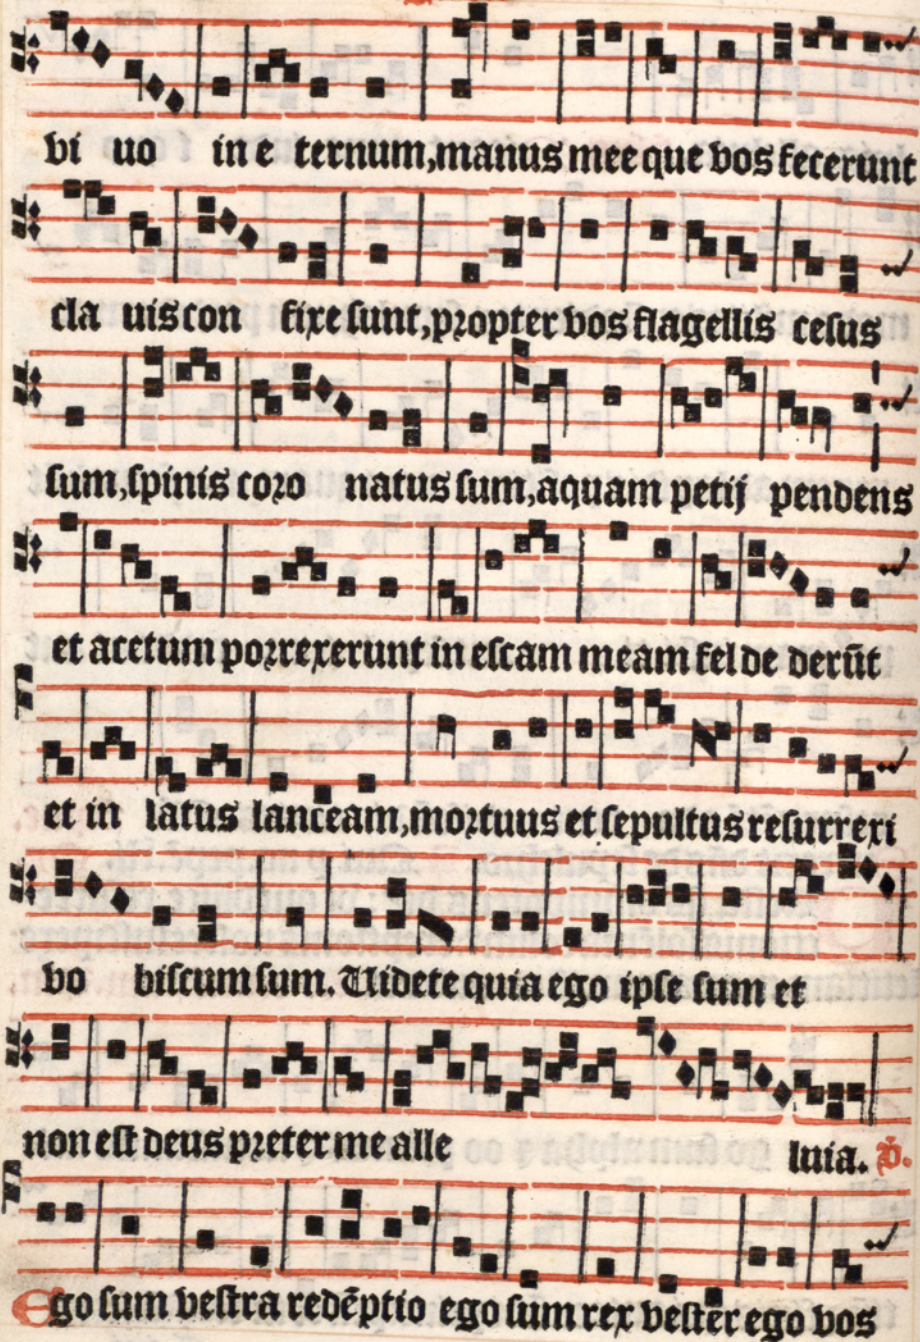 vi uo in e ternum, manus mee que vos fecerunt
cla uis con fixe sunt, propter vos flagellis cesus
sum, spinis coro natus sum, aquam petij pendens
et acetum porrexerunt in escam meam fel de derūt
et in latus lanceam, mortuus et sepultus resurrexi
vo biscum sum. Uidete quia ego ipse sum et
non est deus preter me alle luia. v̄.
Ego sum vestra redēptio ego sum rex vester ego vos